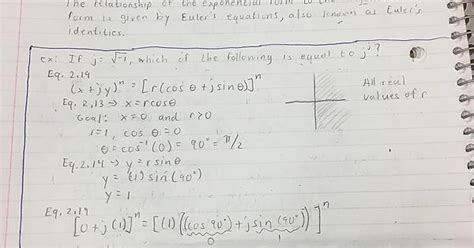 The relationship of the exponential form to the
form is given by Euler's equations, also known as Euler's
identities.
ex: If j = √-1, which of the following is equal to j^j?
Eq. 2.19
(x + jy)^n = [r(cosθ + jsinθ)]^n
Eq. 2.13 → x = rcosθ
Goal: x = 0 and r>0
r=1, cosθ = 0
θ = cos⁻¹(0) = 90° = π/2
Eq. 2.14 → y = rsinθ
y = (1) sin(90°)
y = 1
All real
values of r
Eq. 2.19
[0 + j(1)]^n = [(1)((cos 90°) + jsin(90°))]^n
0 1